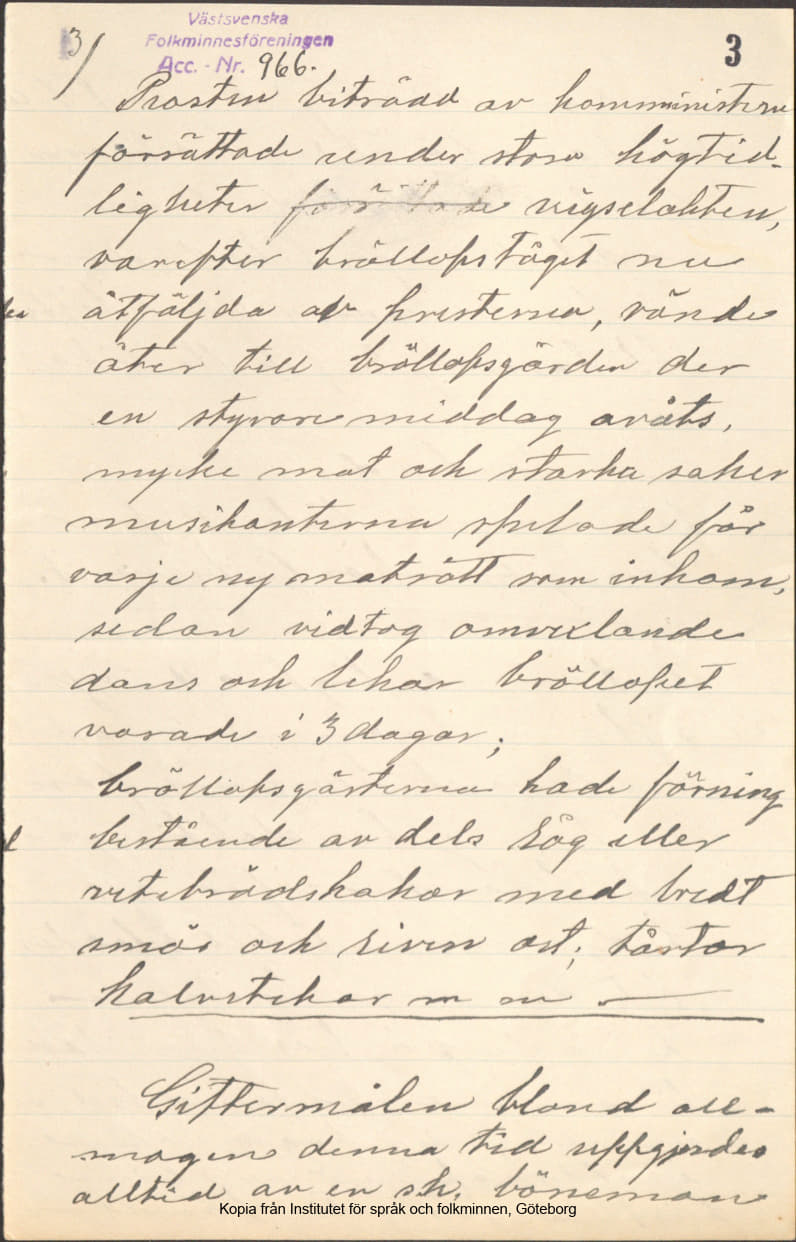 Västsvenska
Folkminnesföreningen
Acc. - Nr. 966.
3/
3
Prosten biträdd av komministern
försättade under stora högtid-
ligheter vigselakten,
varefter bröllopståget nu
åtföljda av presterna, vände
åter till bröllopsgården der
en styvare middag avåts,
mycke mat och starka saker
musikanterna spelade för
varje ny maträtt som inkom,
sedan vidtog omvexlande
dans och lekar bröllopet
varade i 3 dagar;
bröllopsgästerna hade förning
bestående av dels Råg eller
vetebrödskakor med bredt
smör och riven ost; tårtor
kalvstekar m m —
Giftermålen bland all-
mogen denna tid uppgjordes
alltid av en s.k. böneman
Kopia från Institutet för språk och folkminnen, Göteborg